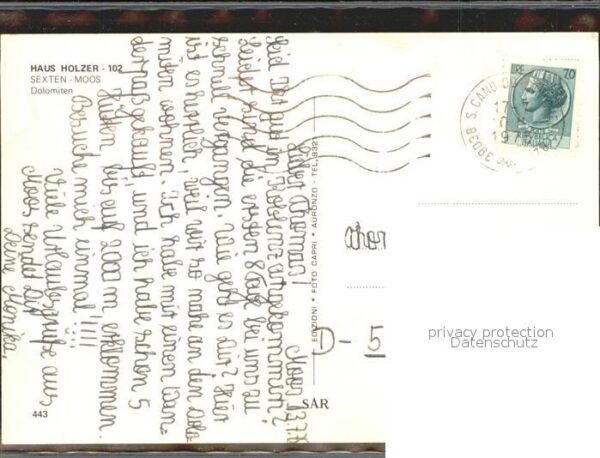 HAUS HOLZER - 102
SEXTEN - MOOS
Dolomiten
Moos, 13.7.7
Lieber Thomas!
Seid Ihr gut in
Leider sind die ersten 8 Tage bei uns zu
schnell vergangen. Wie geht es Dir? Hier
ist es herrlich, weil wir so nahe an den Dolo
miten wohnen. Ich habe mir einen Wan=
derpaß gekauft und ich habe schon 5
Hütten, bis auf 2000 m erklommen.
Besuche mich einmal!!!!
Viele Urlaubsgrüße aus
Moos sendet Dir
Deine Monika.
443
EDIZIONI • FOTO CAPRI • AURONZO - TEL. 932
SAR
LIRE 70
39038 S. CANDIDO
Thom
D - 5
privacy protection
Datenschutz